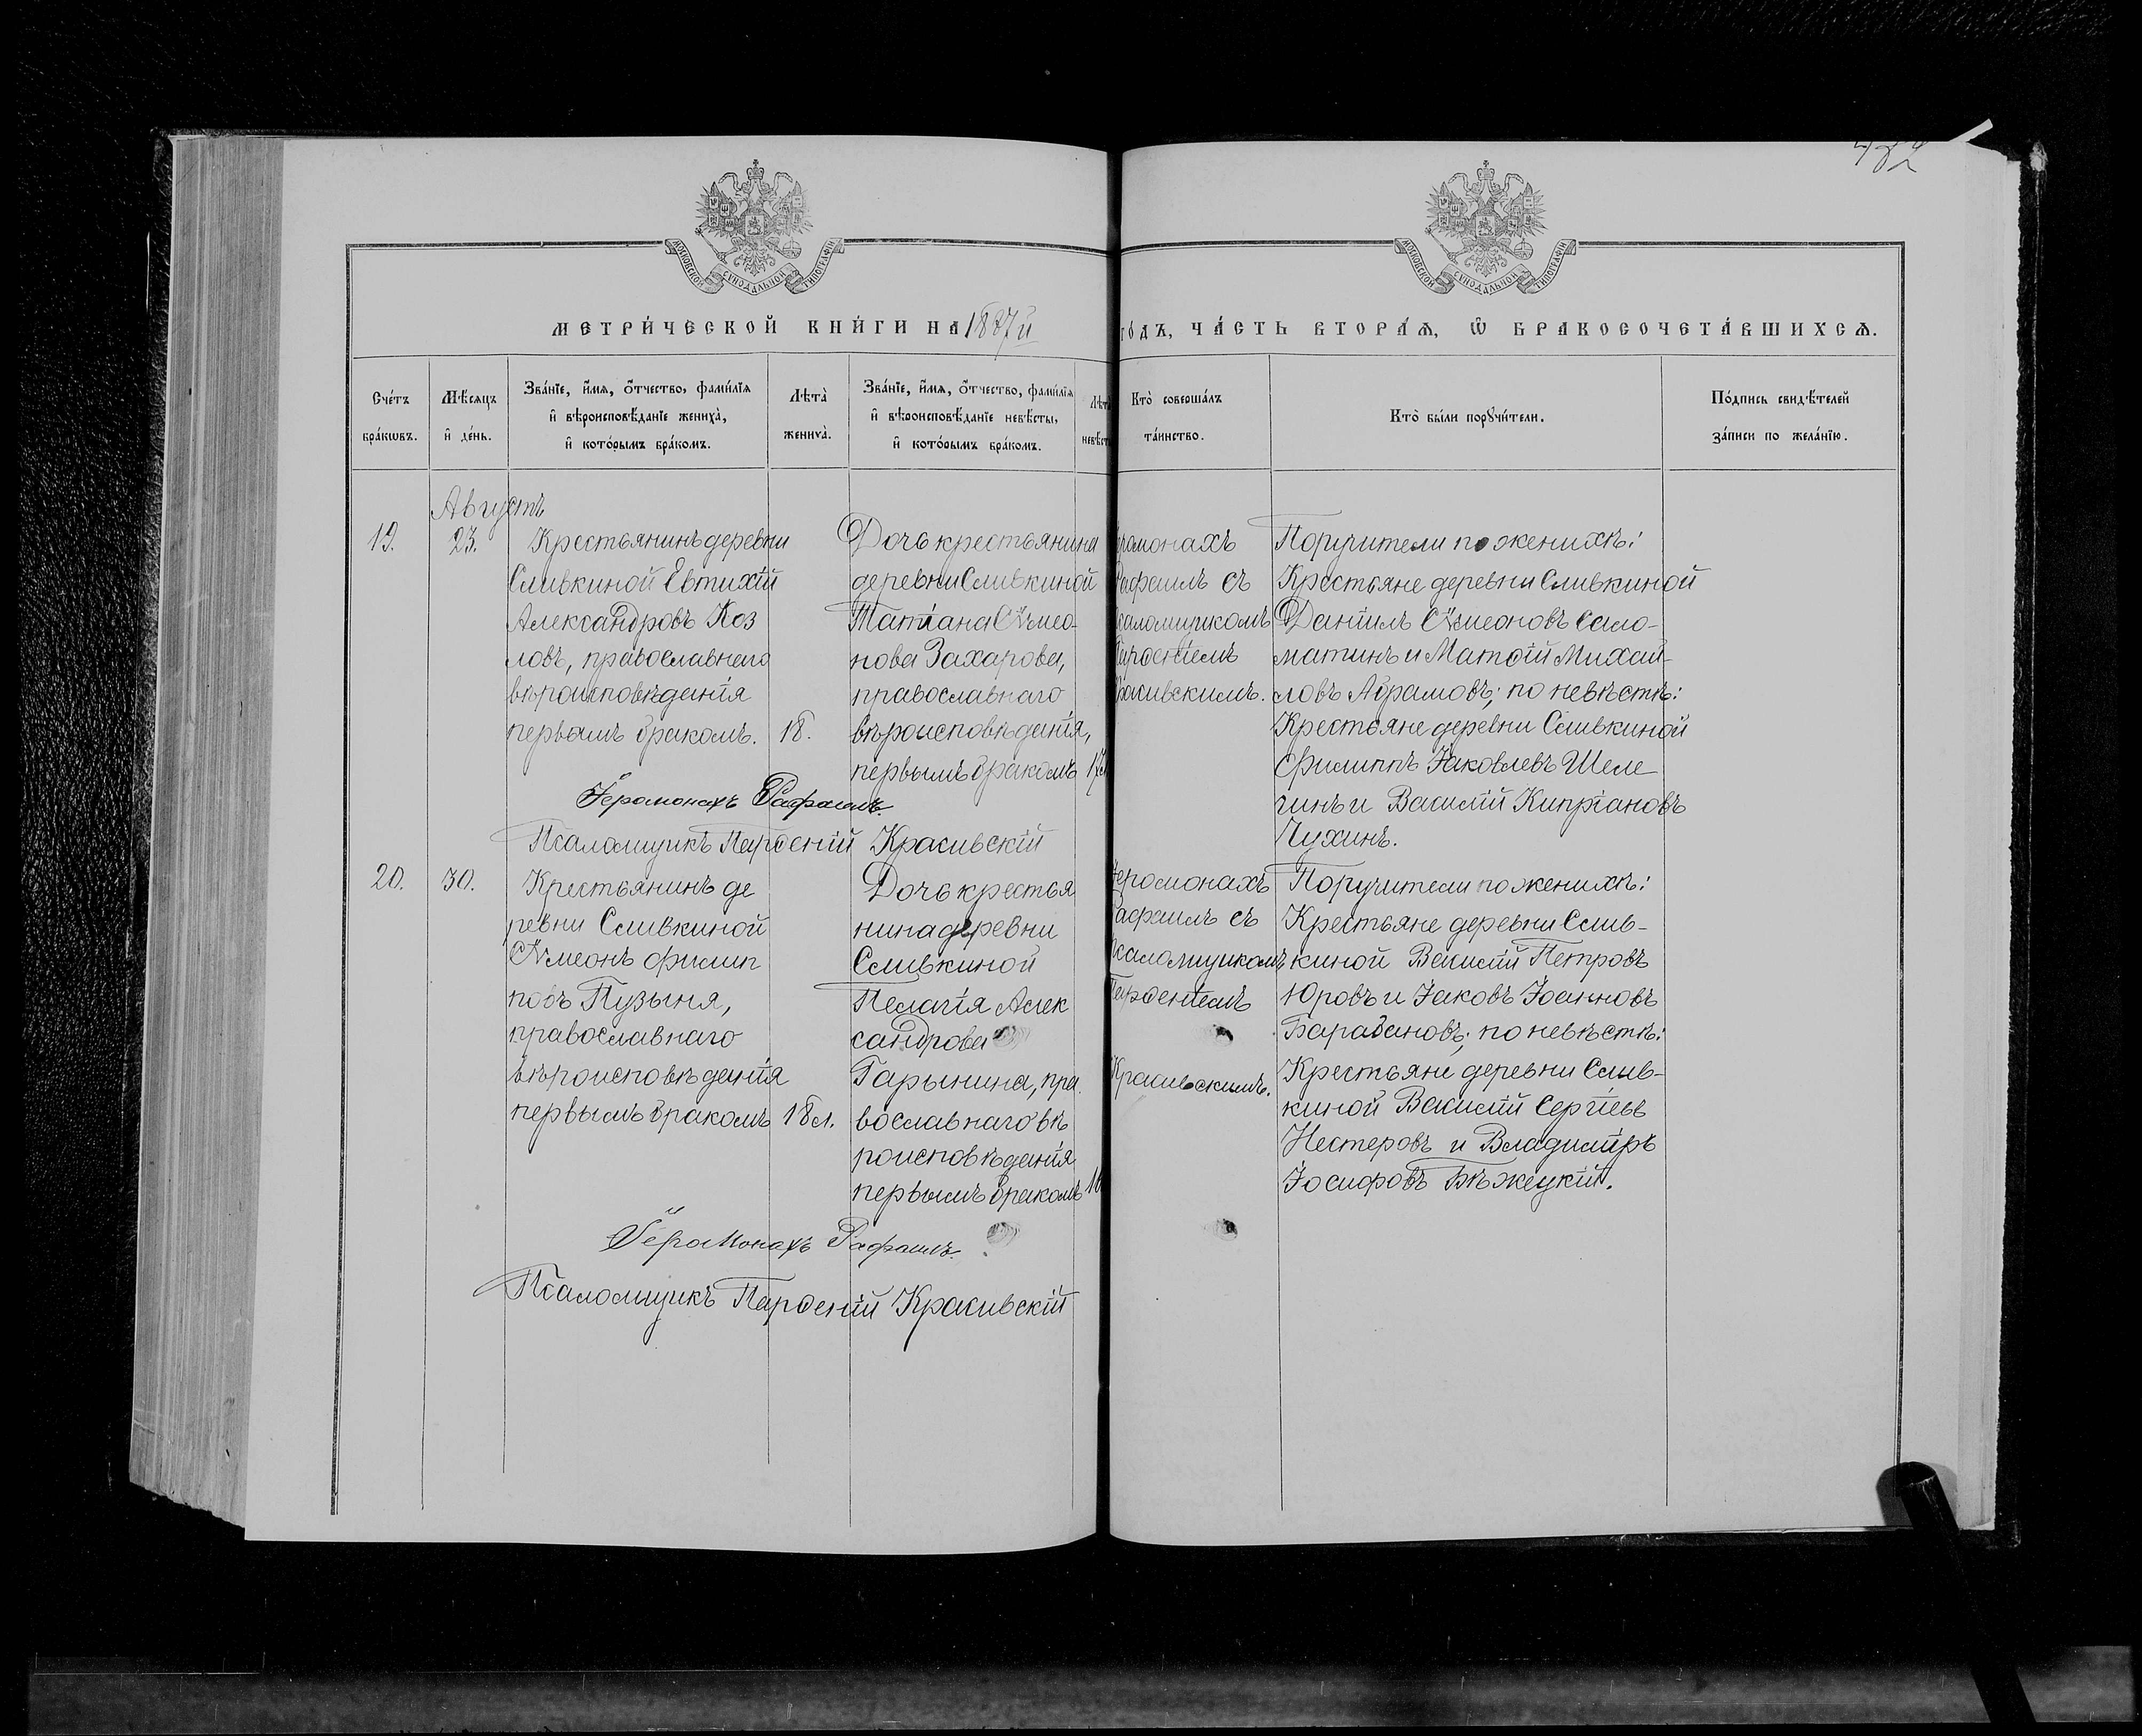 482
МОСКОВСКОЙ СѴНОДАЛЬНОЙ ТИПОГРАФІИ
МОСКОВСКОЙ СѴНОДАЛЬНОЙ ТИПОГРАФІИ
МЕТРИ́ЧЕСКОЙ КНИ́ГИ НА 1887й
ГО́ДЪ, ЧА́СТЬ ВТОРА́Ѧ, Ѽ БРАКОСОЧЕТА́ВШИХСѦ.
Сче́тъ
бра́кѡвъ.
Мѣ́сяцъ
и҆ де́нь.
Зва́нїе, и҆́мѧ, ѻ҆́тчество, фами́лїѧ
и҆ вѣроисповѣ́данїе жениха̀,
и҆ кото́рымъ бра́комъ.
Лѣта̀
жениха̀.
Зва́нїе, и҆́мѧ, ѻ҆́тчество, фами́лїѧ
и҆ вѣроисповѣ́данїе невѣ́сты,
и҆ кото́рымъ бра́комъ.
Лѣта̀
невѣ́ст
Кто̀ соверша́лъ
та́инство.
Кто̀ бы́ли порꙋчи́тели.
По́дпись свидѣ́телей
за́писи по жела́нїю.
Августъ
19.
23.
Крестьянинъ деревни
Сливкиной Евтихій
Александровъ Коз
ловъ, православнаго
вѣроисповѣданія
первымъ бракомъ. 18.
Дочь крестьянина
деревни Сливкиной
Татіана Сѵмео-
нова Захарова,
православнаго
вѣроисповѣданія,
первымъ бракомъ 17
еромонахъ
Рафаилъ съ
саломщикомъ
Парѳеніемъ
Красивскимъ.
Поручители по женихѣ:
Крестьяне деревни Сливкиной
Даніилъ Сѵмеоновъ Сало-
матинъ и Матѳій Михай-
ловъ Абрамовъ; по невѣстѣ:
Крестьяне деревни Сливкиной
Филиппъ Іаковлевъ Шеле
гинъ и Василій Кипріановъ
Чухинъ.
Іеромонахъ Рафаилъ.
Псаломщикъ Парѳеній Красивскій
20.
30.
Крестьянинъ де
ревни Сливкиной
Сѵмеонъ Филип
повъ Пузыня,
православнаго
вѣроисповѣданія
первымъ бракомъ 18 л.
Дочь крестья
нина деревни
Сливкиной
Пелагія Алек
сандрова
Гарынина, пра
вославнаго вѣ
роисповѣданія
первымъ бракомъ 16
Іеромонахъ
Рафаилъ съ
саломщикомъ
Парѳеніемъ
Красивскимъ.
Поручители по женихѣ:
Крестьяне деревни Слив-
киной Василій Петровъ
Юровъ и Іаковъ Іоанновъ
Барабановъ; по невѣстѣ:
Крестьяне деревни Слив-
киной Василій Сергіевъ
Нестеровъ и Владиміръ
Іосифовъ Бѣжецкій.
Іеромонахъ Рафаилъ.
Псаломщикъ Парѳеній Красивскій